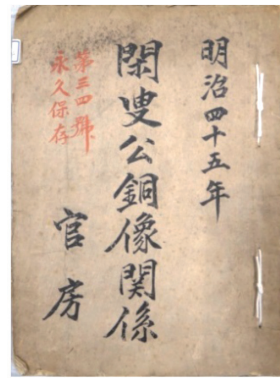 明治四十五年
閑叟公銅像関係
官房
第三四號
永久保存